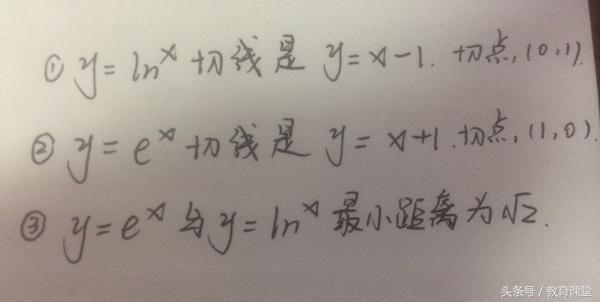 ① y=lnˣ 切线是 y=x-1. 切点,(0,1).
② y=eˣ 切线是 y=x+1.切点,(1,0).
③ y=eˣ与y=lnˣ 最小距离为√2.
头条号/教育课堂